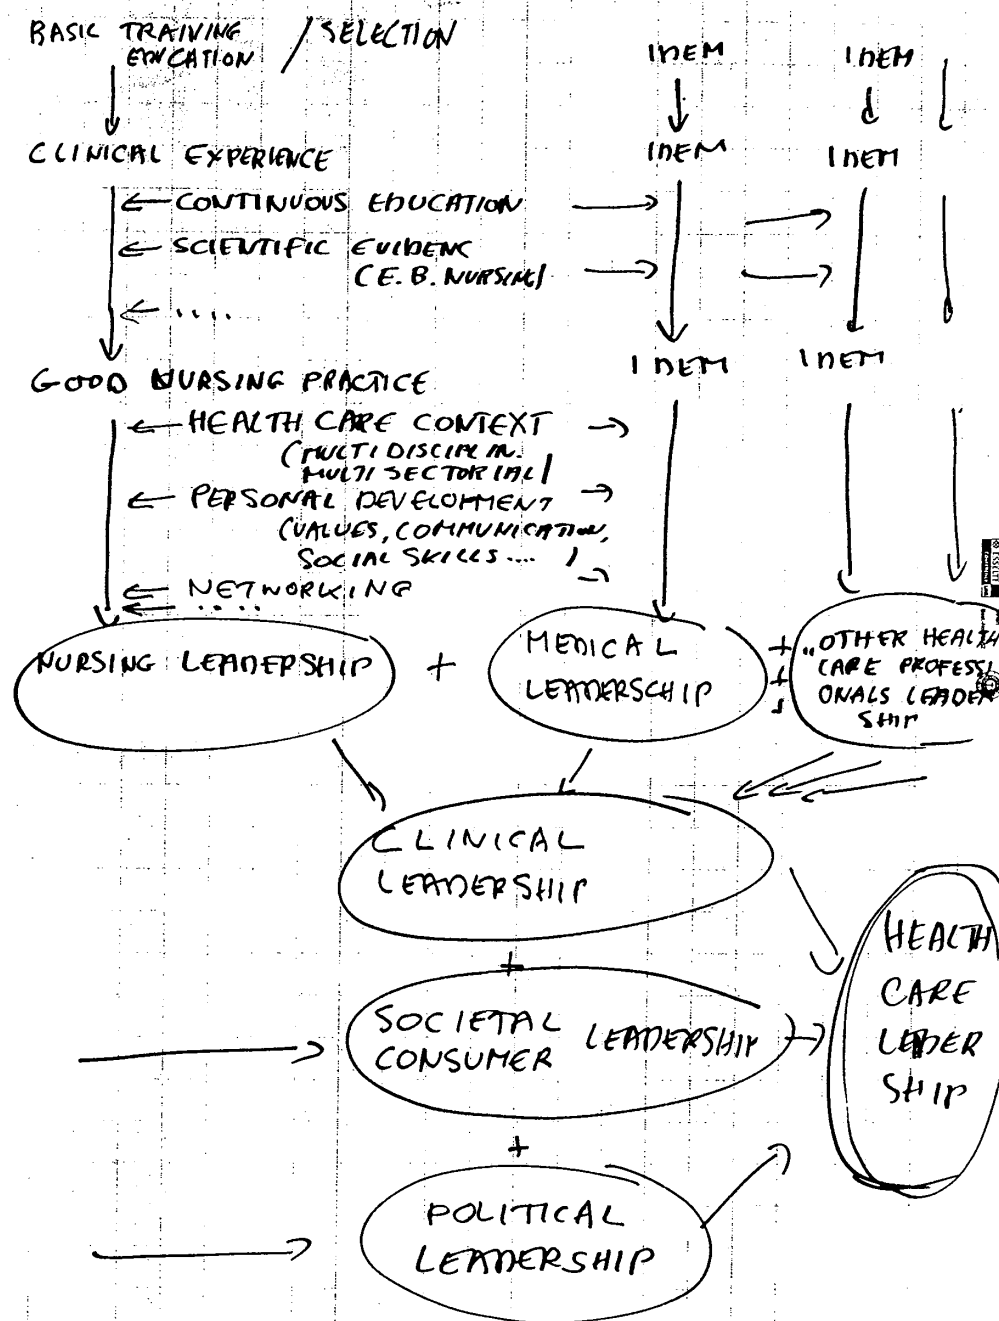 BASIC TRAINING / SELECTION
EDUCATION
IDEM IDEM
CLINICAL EXPERIENCE IDEM IDEM
CONTINUOUS EDUCATION
SCIENTIFIC EVIDENC
(E.B. NURSING)
....
GOOD NURSING PRACTICE IDEM IDEM
HEALTH CARE CONTEXT
(MULTI DISCIPLIN.
MULTI SECTORIAL)
PERSONAL DEVELOPMENT
(VALUES, COMMUNICATION,
SOCIAL SKILLS....)
NETWORKING
.. ..
NURSING LEADERSHIP + MEDICAL
LEADERSCHIP
+ + +
"OTHER HEALTH
CARE PROFESSI
ONALS LEADER
SHIP
CLINICAL
LEADERSHIP
+
SOCIETAL
CONSUMER LEADERSHIP
+
POLITICAL
LEADERSHIP
HEALTH
CARE
LEADER
SHIP